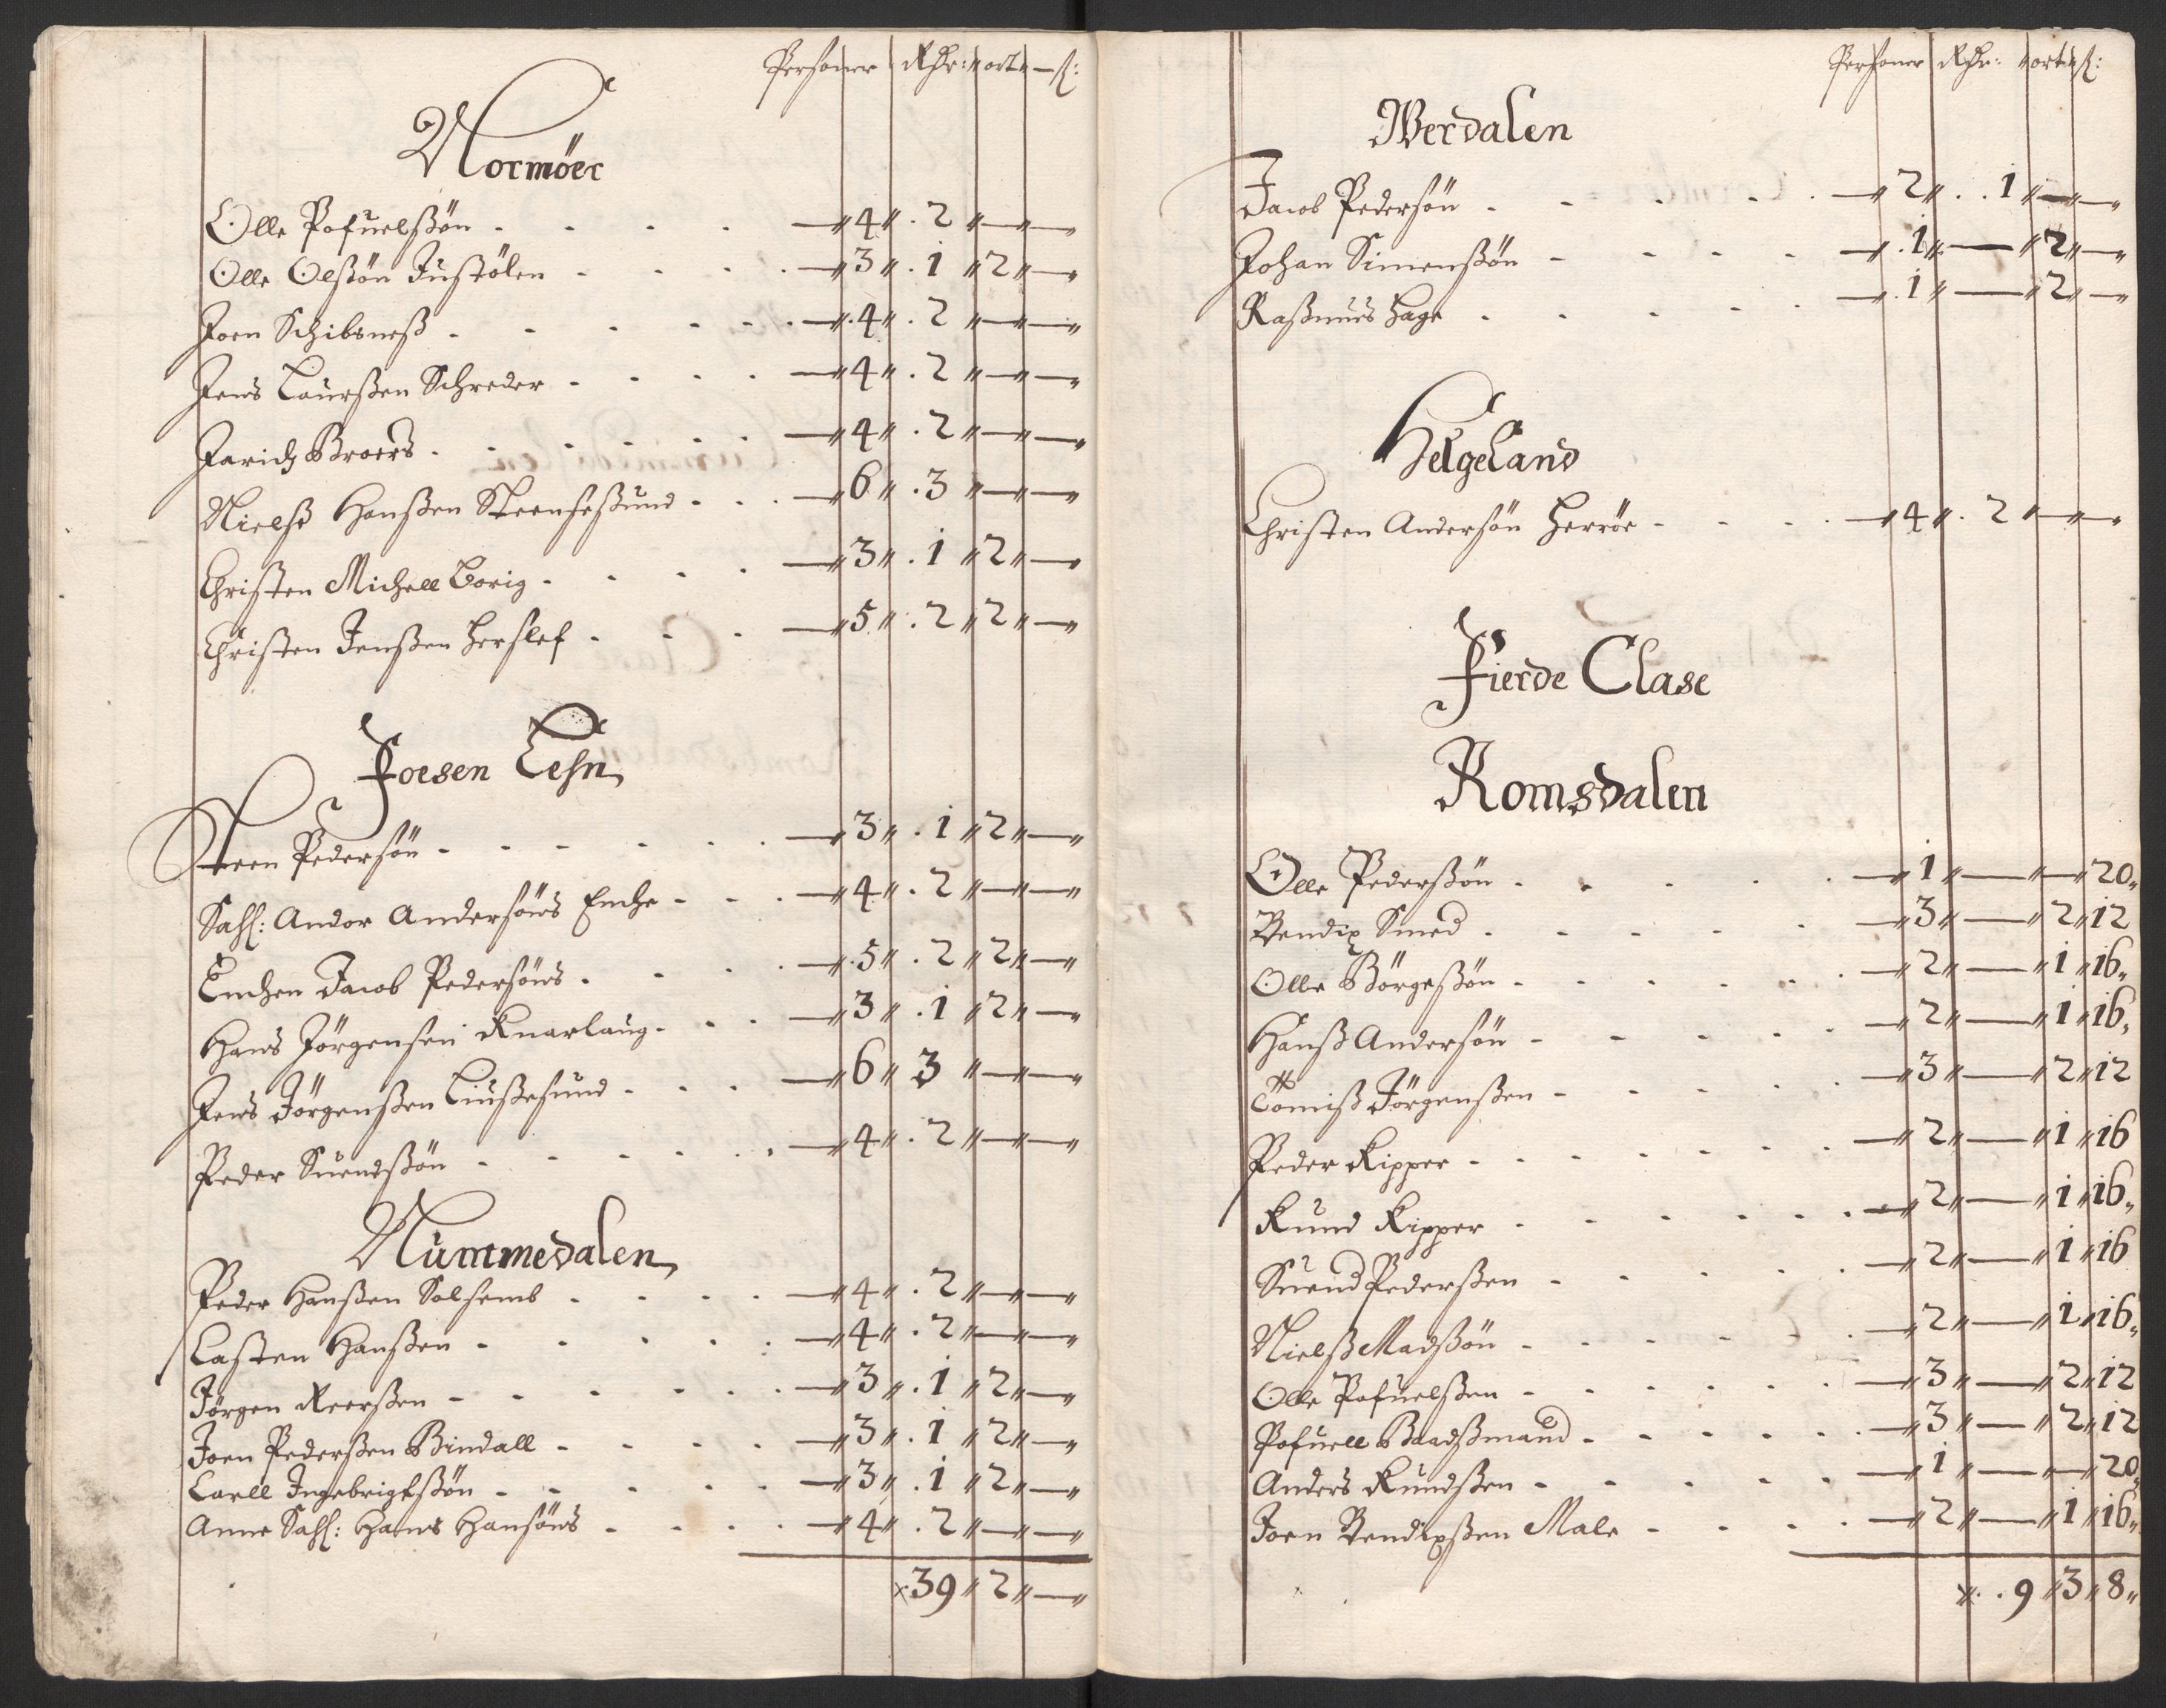 Personer Rdr: ort ß:
Normöer
Olle Pofuelßøn - - - - 4 . 2 — —
Olle Olßøn Justölen - - - - 3 . 1 2 —
Joen Schibsneß - - - - 4 . 2 — —
Jens Laurßen Schreder - - - - 4 . 2 — —
Farich Broers - - - - 4 . 2 — —
Nielß Hanßen - - - 6 . 3 — —
Christen Michell Borig - - - - 3 . 1 2 —
Christen Jenßen Herslef - - - 5 . 2 2 —
Foesen Lehn
Steen Pedersøn - - - - 3 . 1 2 —
Sahl: Andor Andersøns Enche - - - 4 . 2 — —
Enchen Jacob Pedersøns - - - - 5 . 2 2 —
Hans Jörgensen Knarlaug - - - 3 . 1 2 —
Jens Jörgenßen Liußesund - - - 6 3 — —
Peder Suendßøn - - - - 4 . 2 — —
Nummedalen
Peder Hanßen Solsemb - - - - 4 . 2 — —
Casten Hanßen - - - - 4 . 2 — —
Jörgen Reerßen - - - - 3 . 1 2 —
Joen Pederßen Bindall - - - - 3 . 1 2 —
Carll Ingebrigtßøn - - - - 3 . 1 2 —
Anne Sahl: Hans Hansøns - - - - 4 . 2 — —
39 2 —
Personer Rdr: ort ß:
Werdalen
Jacob Pedersøn - - - - 2 . . 1 — —
Johan Simenßøn - - - - 1 — 2 —
Raßmus Hage - - - - 1 — 2 —
Helgeland
Christen Andersøn Herröe - - - - 4 . 2 — —
Fierde Clase
Romsdalen
Olle Pederßøn - - - - 1 — — 20
Bendix Smed - - - - 3 — 2 12
Olle Börgeßøn - - - - 2 — 1 16
Hanß Andersøn - - - - 2 — 1 16
Tömiß Jörgenßen - - - - 3 — 2 12
Peder Kipper - - - - 2 — 1 16
Knud Kipper - - - - 2 — 1 16
Suend Pederßen - - - - 2 — 1 16
Nielß Madßøn - - - - 2 — 1 16
Olle Pofuelßen - - - - 3 — 2 12
Pofuell Baadßmand - - - - 3 — 2 12
Anders Knudßen - - - - 1 — — 20
Joen Bendixßen Male - - - - 2 — 1 16
9 3 8